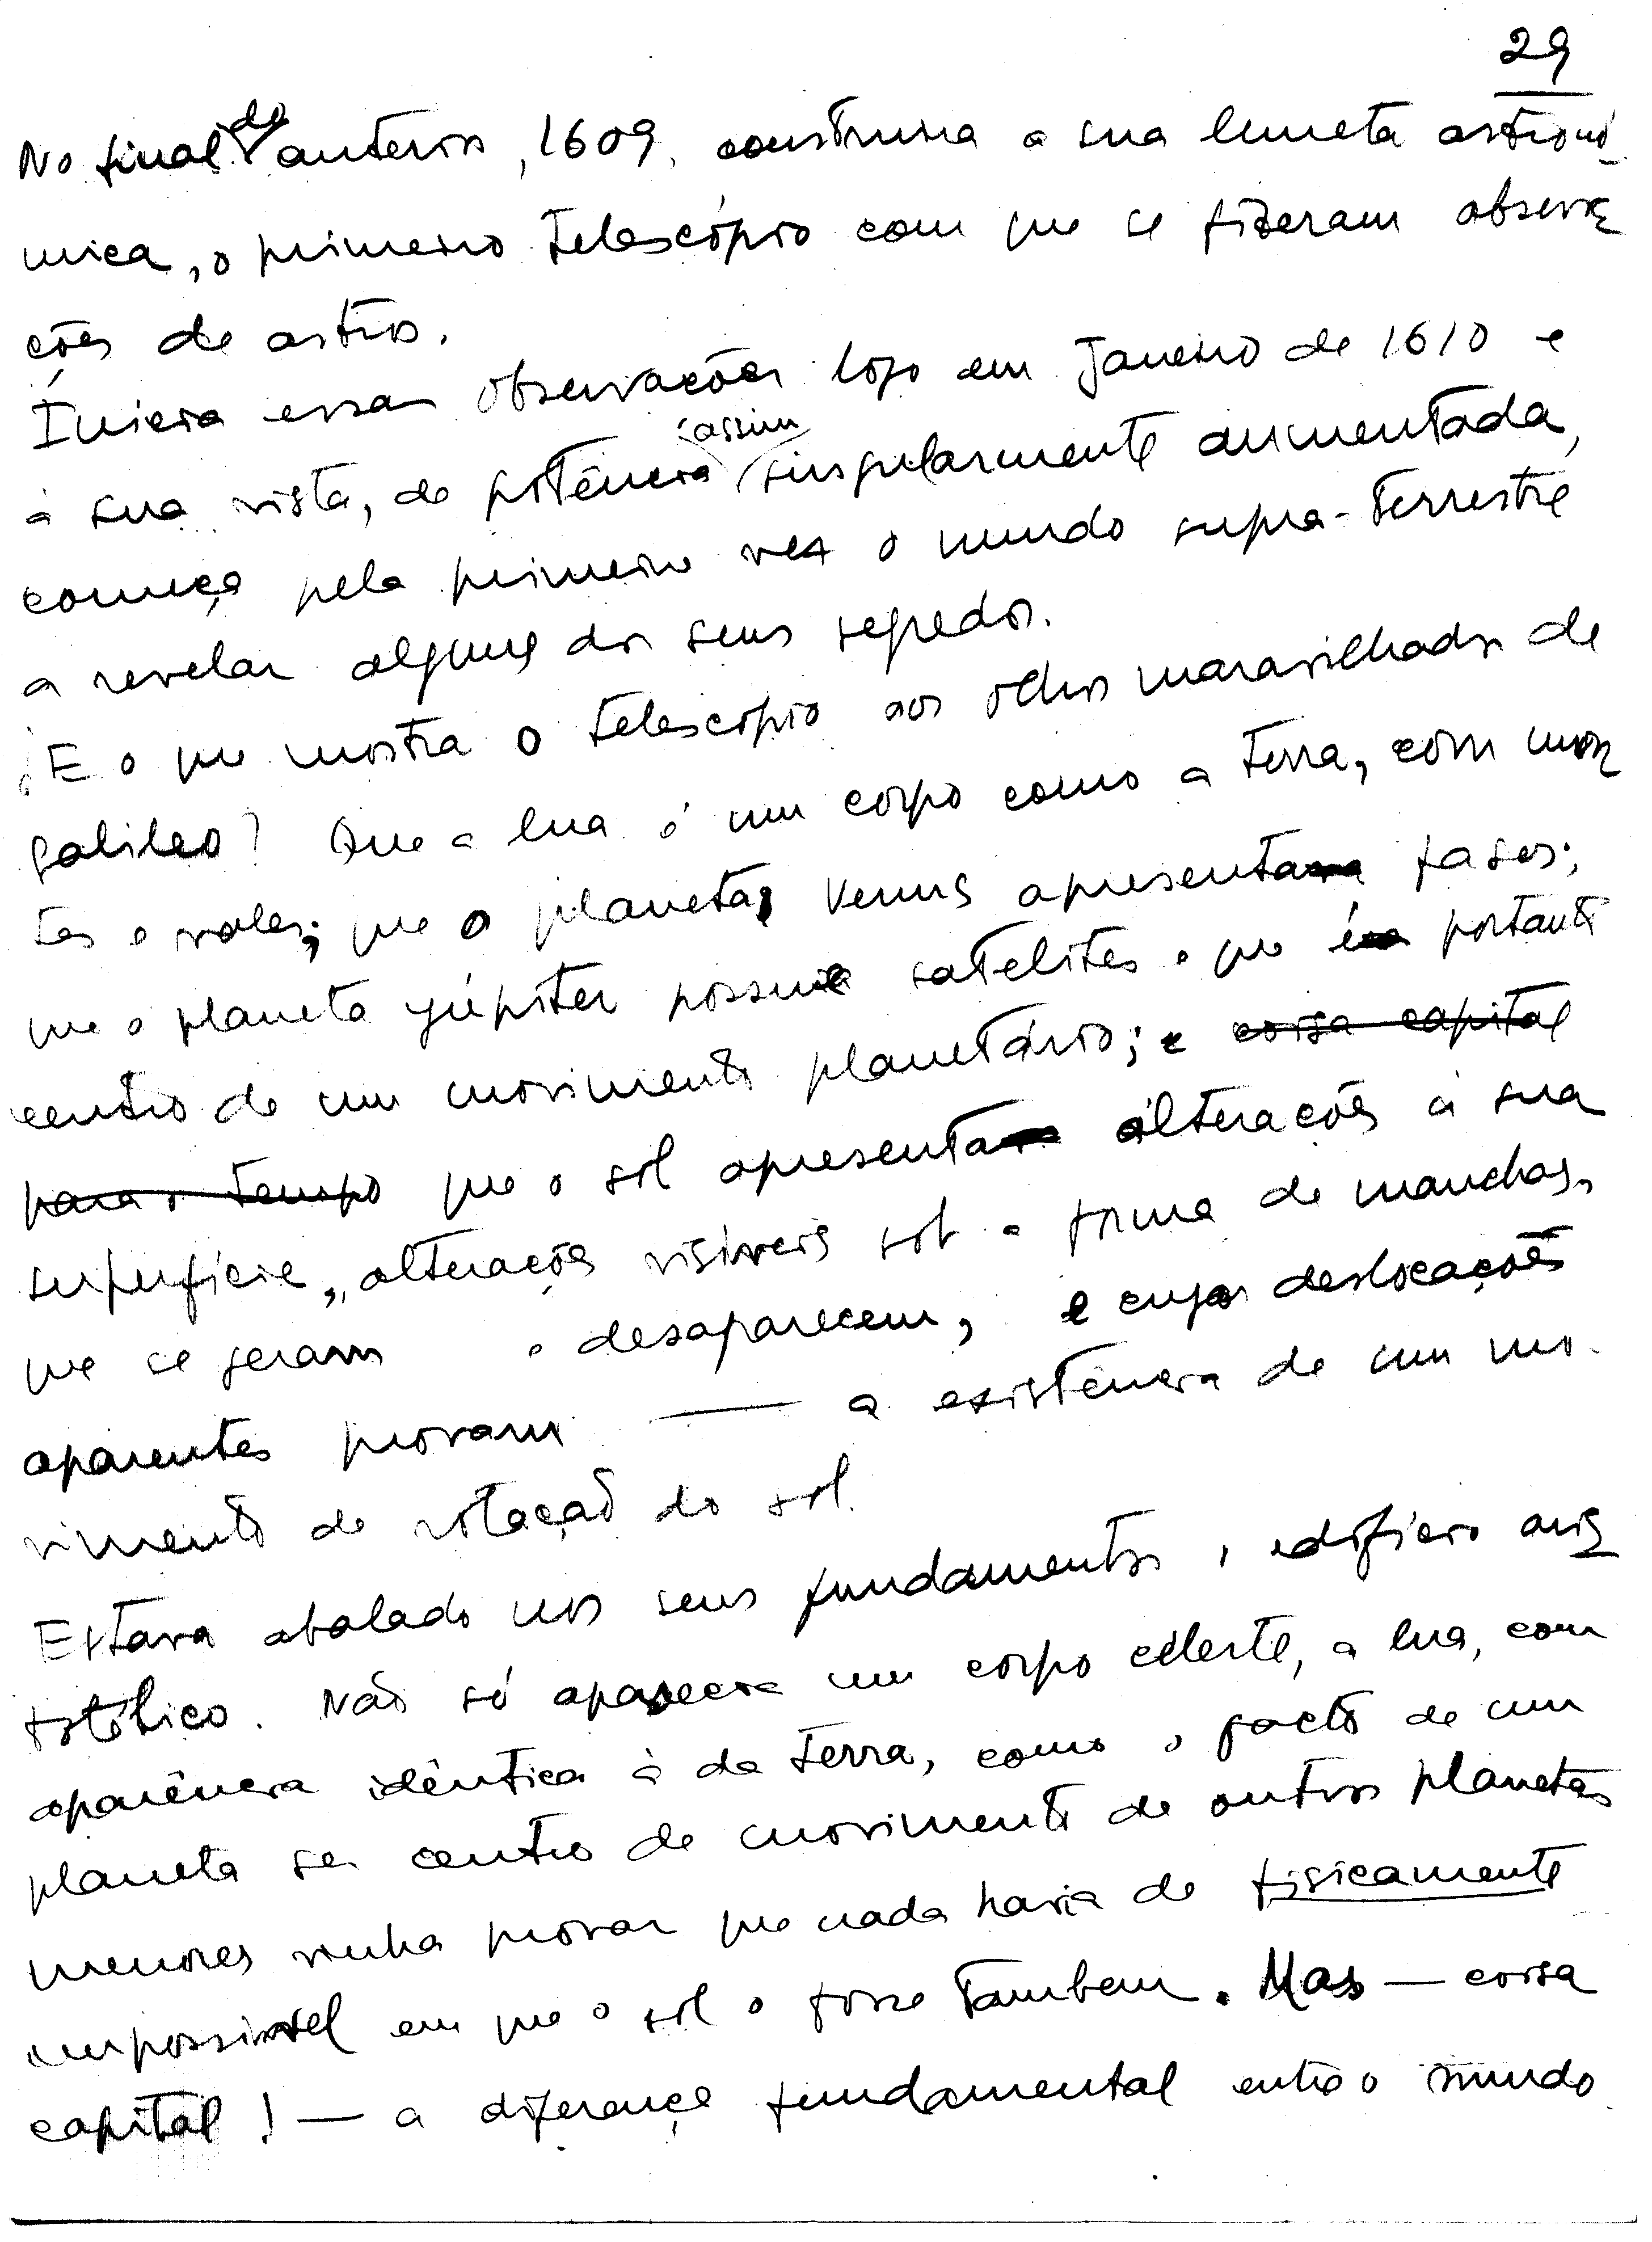 29
No final do anterior, 1609, construira a sua luneta astronó-
mica, o primeiro telescópio com que se fizeram observa
ções de astros.
Inicia essas observações logo em Janeiro de 1610 e
à sua vista, de potência assim singularmente aumentada,
começa pela primeira vez o mundo supra-terrestre
a revelar alguns dos seus segredos.
E o que mostra o telescópio aos olhos maravilhados de
Galileo? Que a lua é um corpo como a terra, com mon
tes e vales; que o planeta Venus apresenta fases;
que o planeta Júpiter possue satelites e que é portanto
centro de um movimento planetário; e coisa capital
para o tempo que o sol apresenta alterações à sua
superfície, alterações visíveis sob a forma de manchas,
que se geram e desaparecem, e cujas deslocações
aparentes provam — a existência de um mo-
vimento de rotação do sol.
Estava abalado nos seus fundamentos o edifício aris
totélico. Não só aparecia um corpo celeste, a lua, com
aparência idêntica à da terra, como o facto de um
planeta ser centro de movimento de outros planetas
menores vinha provar que nada havia de fisicamente
impossível em que o sol o fosse tambem. Mas — coisa
capital! — a diferença fundamental entre o mundo